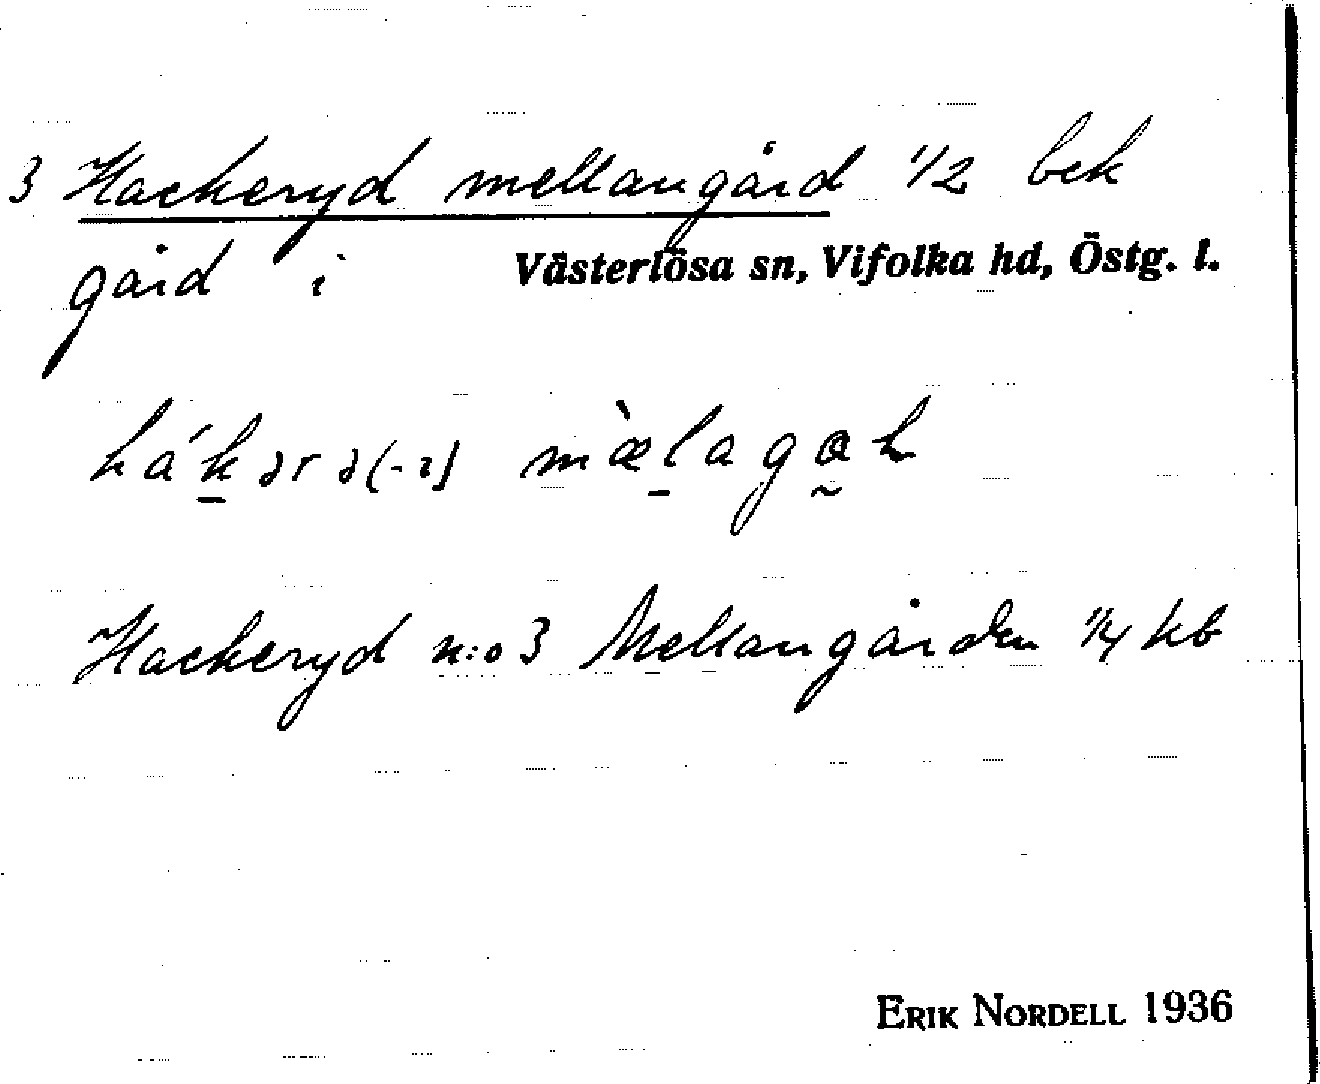 3 Hackeryd mellangård 1/2 bek
gård i Västerlösa sn, Vifolka hd, Östg. l.
hák̠ərə(-ı) mæ̀l̠agɑ̰h
Hackeryd n:o 3 Mellangården 1/4 kb
ERIK NORDELL 1936